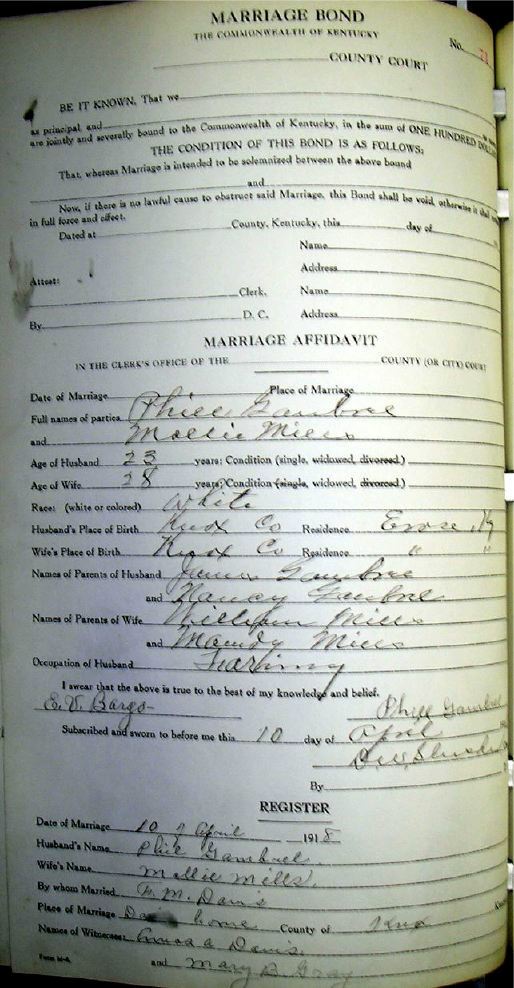 MARRIAGE BOND
THE COMMONWEALTH OF KENTUCKY
No.
COUNTY COURT
BE IT KNOWN, That we
as principal, and
are jointly and severally bound to the Commonwealth of Kentucky, in the sum of ONE HUNDRED
THE CONDITION OF THIS BOND IS AS FOLLOWS:
That, whereas Marriage is intended to be solemnized between the above bound
and
Now, if there is no lawful cause to obstruct said Marriage, this Bond shall be void, otherwise it shall
in full force and effect.
Dated at County, Kentucky, this day of
Name
Address
Attest:
Clerk. Name
By D. C. Address
MARRIAGE AFFIDAVIT
IN THE CLERK'S OFFICE OF THE COUNTY (OR CITY) COURT
Date of Marriage Place of Marriage
Full names of parties Phill Gambrel
and Mollie Mills
Age of Husband 23 years; Condition (single, widowed, divorced.)
Age of Wife 28 years; Condition (single, widowed, divorced.)
Race: (white or colored) White
Husband's Place of Birth Knox Co Residence Erose, Ky
Wife's Place of Birth Knox Co Residence " "
Names of Parents of Husband James Gambrel
and Nancy Gambrel
Names of Parents of Wife William Mills
and Mandy Mills
Occupation of Husband Farming
I swear that the above is true to the best of my knowledge and belief.
E. V. Bargo Phill Gambrel
Subscribed and sworn to before me this 10 day of April
By
REGISTER
Date of Marriage 10 of April 1918
Husband's Name Phil Gambrel
Wife's Name Mollie Mills
By whom Married F. M. Davis
Place of Marriage Davis home County of Knox
Names of Witnesses: Davis
and Mary B. Gray